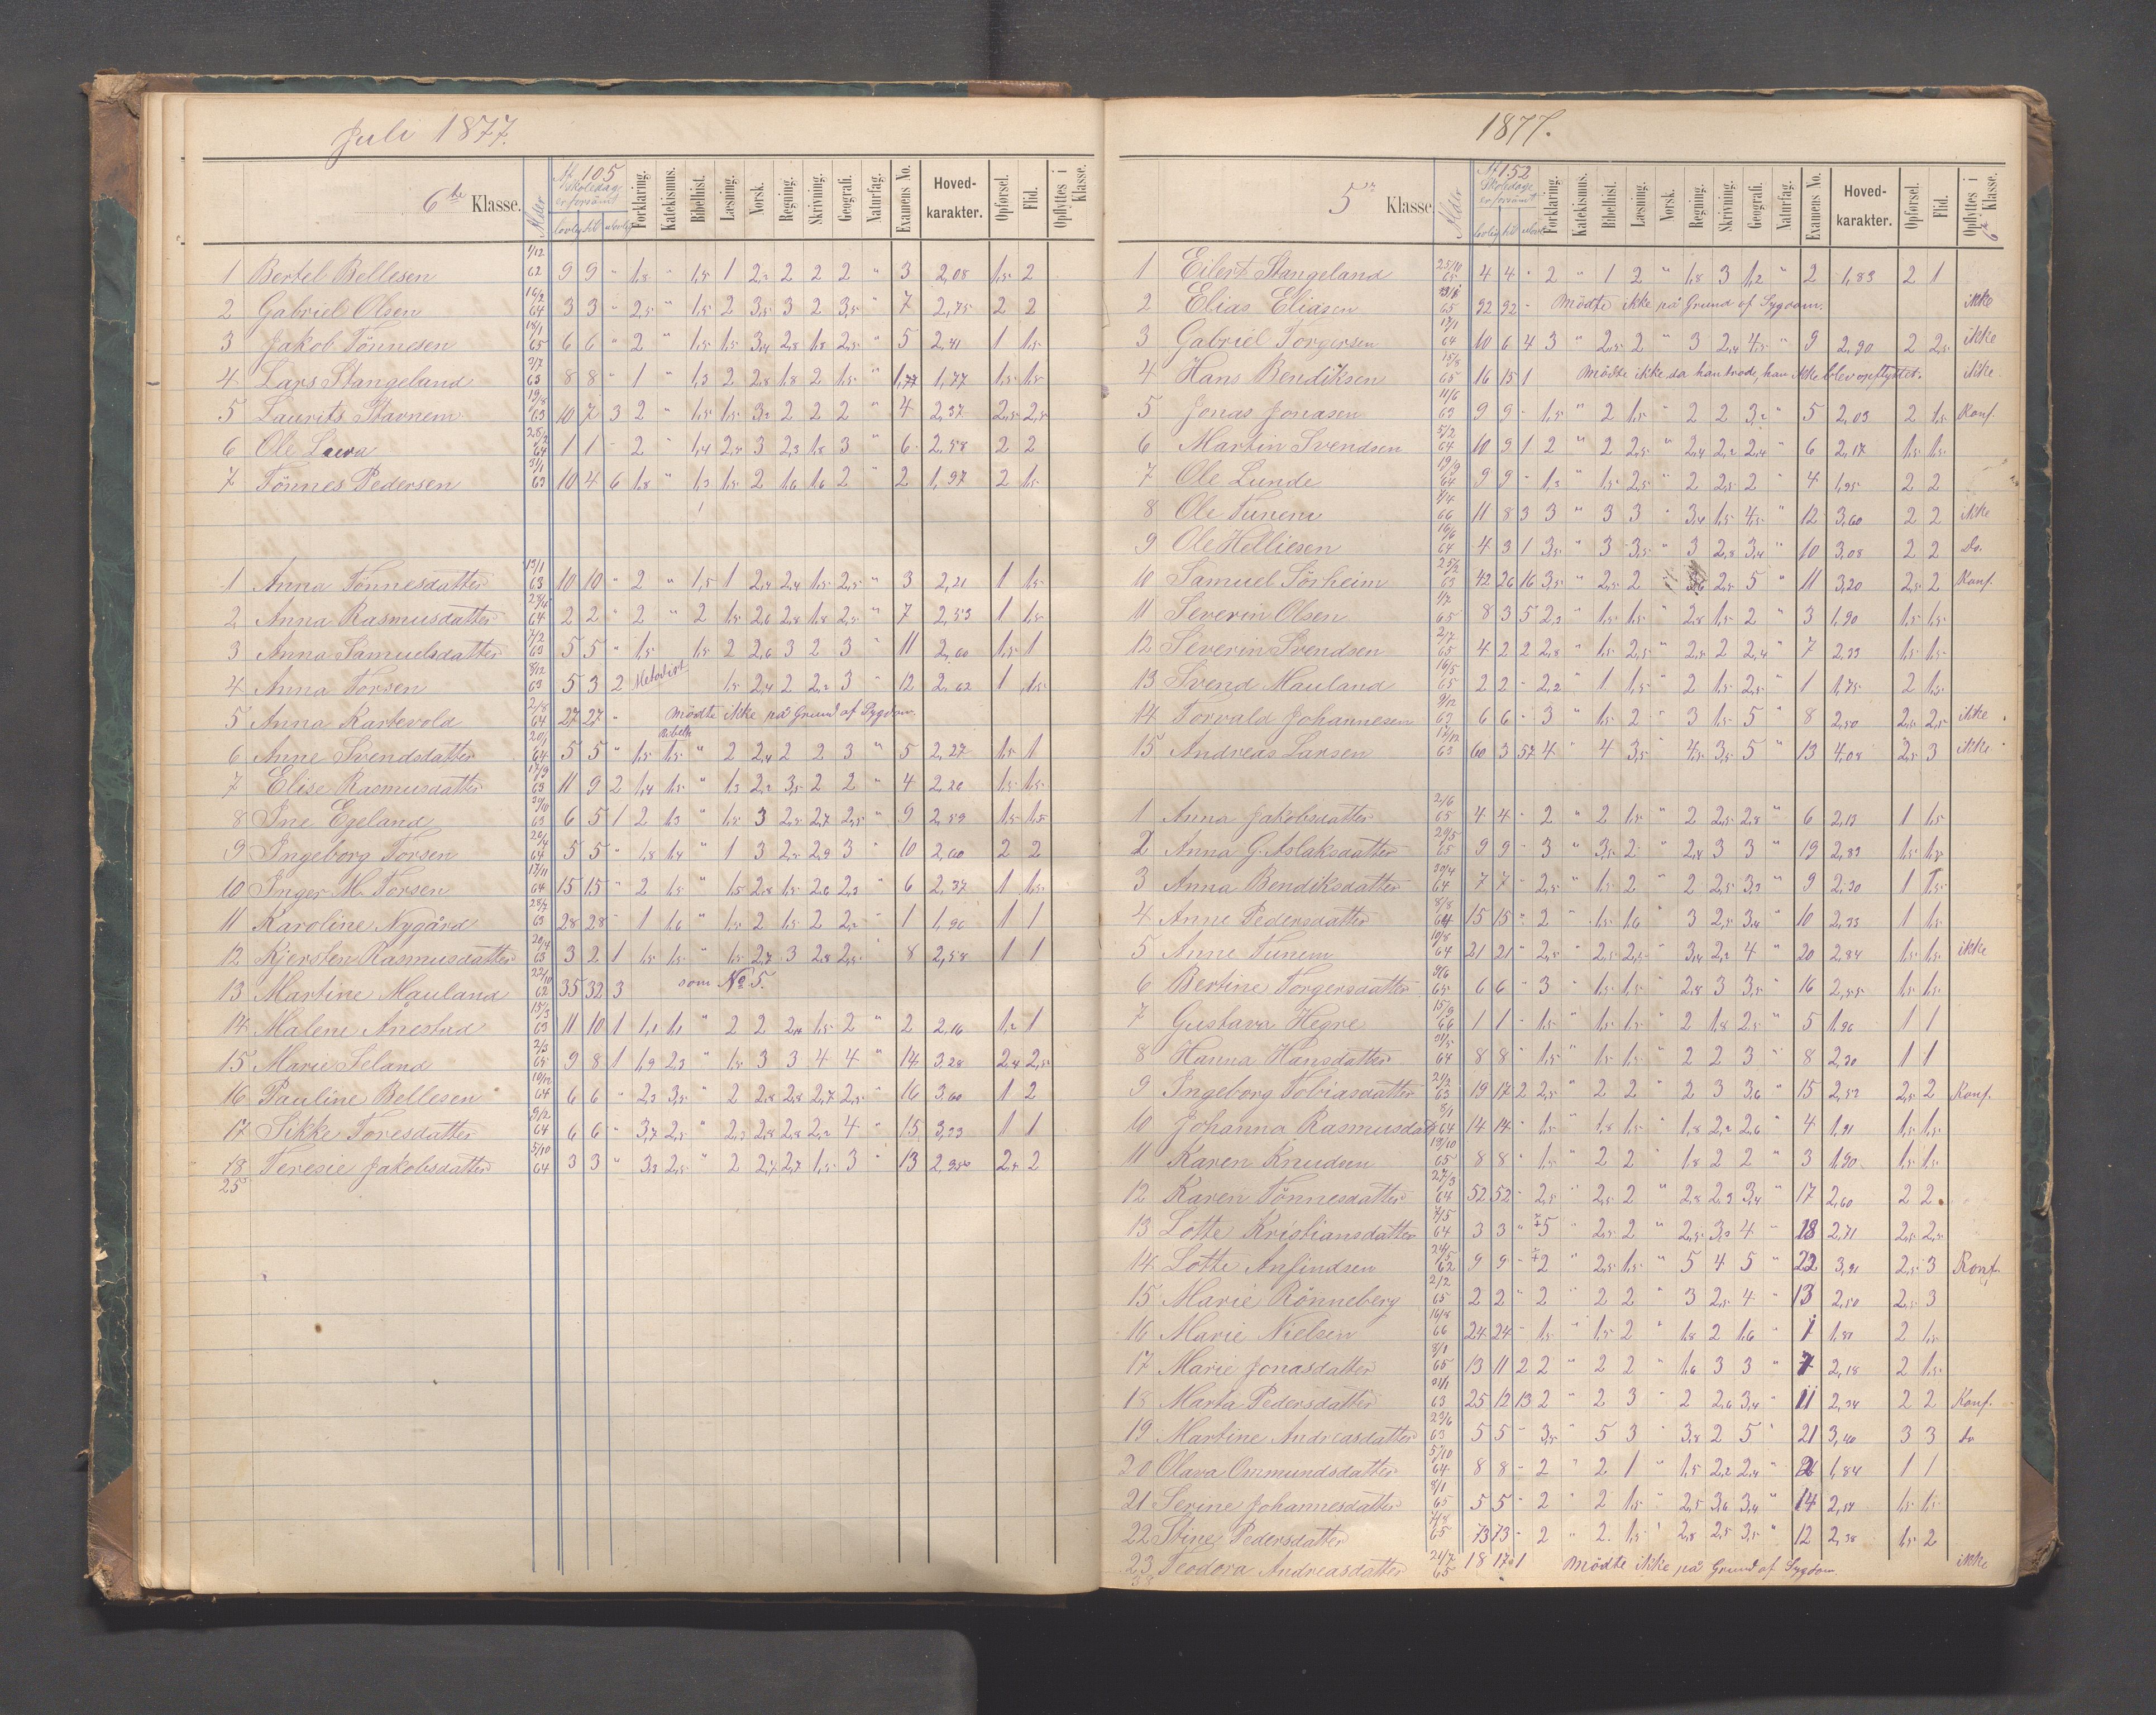 Juli 1877.
6te Klasse. Alder Af 105 Skoledage er forsömt lovlig til ulovlig Forklaring. Katekismus. Bibelhist. Læsning. Norsk. Regning. Skrivning. Geografi. Naturfag. Examens No. Hoved-karakter. Opførsel. Flid. Opflyttes i Klasse.
1 Bertel Bellesen 1/12 62 9 9 " 1,8 " 1,5 1 2,2 2 2 2 " 3 2,08 1,5 2
2 Gabriel Olsen 16/2 64 3 3 - 2,5 " 1,5 2 3,5 3 2 3,5 " 7 2,75 2 2
3 Jakob Tönnesen 18/1 65 6 6 " 2 " 1,5 1,5 3,4 2,8 1,8 2,5 " 5 2,41 1 1,5
4 Lars Stangeland 2/7 63 8 8 " 1 " 1,3 2 2,8 1,8 2 1,5 " 1,77 1,77 1,5 1,5
5 Laurits Stavnem 19/8 63 10 7 3 2 " 1,5 1,5 3,2 2 2 2 " 4 2,37 2,5 2,5
6 Ole Lura 64 1 1 - 2 " 1,4 2,5 3 2,3 1,8 3 " 6 2,58 2 2
7 Tönnes Pedersen 31/1 63 10 4 6 1,8 " 1,3 1,5 2 1,6 1,6 2 " 2 1,97 2 1,5
1 Anna Tönnesdatter 19/1 63 10 10 " 2 " 1,5 1 2,4 2,4 1,5 2,5 " 3 2,21 1 1,5
2 Anna Rasmusdatter 28/4 64 2 2 " 2 " 2 1,5 2,6 2,8 1,8 2,5 " 7 2,53 1 1,5
3 Anna Samuelsdatter 7/2 63 5 5 " 1,5 1,5 2 2,6 3 2 3 " 11 2,60 1,5 1
4 Anna Torsen 8/12 63 5 3 2 Metodist 1,5 2,4 2 2,2 3 " 12 2,62 1 1,5
5 Anna Kartevold 2/8 64 27 27 " Mödte ikke på Grund af Sygdom.
6 Anne Svendsdatter 20/1 64 5 5 " 1,5 1,5 " 2 2,4 2 2 3 " 5 2,27 1,5 1
7 Elise Rasmusdatter 17/9 63 11 9 2 1,4 1,5 " 1,3 2,2 3,5 2 2 " 4 2,20 1,5 1,5
8 Ine Egeland 30/10 63 6 5 1 2 1,3 " 1,5 3 2,5 2,7 2,5 " 9 2,59 1,5 1,8
9 Ingeborg Torsen 20/4 64 5 5 " 1,8 1,4 " 1 3 2,5 2,9 3 " 10 2,60 2 2
10 Inger M. Torsen 17/11 64 15 15 " 2 1,5 " 1,5 2,8 1,5 2,6 2,3 " 6 2,37 1 1,5
11 Karoline Nygård 28/7 63 28 28 - 1 1,6 " 1,5 2 1,5 2 2,2 " 1 1,96 1 1
12 Kjersten Rasmusdatter 20/4 63 3 2 1 1,5 1,5 " 1,5 2,7 3 2,8 2,5 8 2,58 1 1
13 Martine Mauland 22/10 62 35 32 3 som No 5.
14 Malene Ånestad 15/3 63 11 10 1 1,1 1,1 " 2 2 2,4 1,5 2 " 2 2,16 1,2 1
15 Marie Seland 2/3 65 9 8 1 1,9 2,3 " 1,5 3 3 4 4 " 14 3,28 2,4 2,5
16 Pauline Bellesen 10/12 64 6 6 " 2,3 3,5 " 2 2,8 2,8 2,7 2,5 " 16 3,60 1 2
17 Sikke Toresdatter 9/2 64 6 6 " 3,7 2,5 " 2,3 2,8 2,8 2,2 4 " 15 3,33 1 1
18 Teresie Jakobsdatter 5/10 64 3 3 " 3,3 2,5 " 2 2,7 2,7 1,5 3 " 13 2,5 2
25
1877.
5te Klasse. Alder Af 152 Skoledage er forsömt lovlig til ulovl. Forklaring. Katekismus. Bibelhist. Læsning. Norsk. Regning. Skrivning. Geografi. Naturfag. Examens No. Hoved-karakter. Opførsel. Flid. Opflyttes i 6te Klasse.
1 Eilert Stangeland 25/11 65 4 4 " 2 " 1 2 " 1,8 3 1,2 " 2 1,83 2 1
2 Elias Eliasen 65 92 92 - Mödte ikke på Grund af Sygdom. ikke
3 Gabriel Torgersen 17/1 64 10 6 4 3 " 2,5 2 " 3 2,4 4,5 " 9 2,90 2 2,5 ikke
4 Hans Bendiksen 15/8 65 16 15 1 Mödte ikke da han trode, han ikke blev opflyttet. ikke
5 Jonas Jonasen 11/6 63 9 9 - 1,5 " 2 1,5 " 2 2 3,2 " 5 2,03 2 1,5 Konf.
6 Martin Svendsen 5/2 64 10 9 1 2 " 2 2,5 " 2,4 2,2 2,4 " 6 2,17 1,5 1,5
7 Ole Lunde 19/9 64 9 9 - 1,3 " 1,5 2,5 " 2 2,5 2 " 4 1,95 2 2
8 Ole Tunem 7/4 66 11 8 3 3 " 3 3 " 3,4 1,5 4,5 " 12 3,60 2 2 ikke
9 Ole Helliesen 16/6 64 4 3 1 3,5 " 3 3,5 " 3 2,8 3,4 " 10 3,08 2 2 Do.
10 Samuel Sörheim 25/2 63 42 26 16 3,5 " 2,5 2 3,6 2,5 5 " 11 3,20 2,5 2 Konf.
11 Severin Olsen 1/7 65 8 3 5 2,2 " 1,5 1,5 " 2,8 1,5 2 " 3 1,90 1,5 1,5
12 Severin Svendsen 2/7 65 4 2 2 2,8 " 1,5 2,5 " 2,5 2 2,4 " 7 2,33 1,5 1,5
13 Svend Mauland 16/5 65 2 2 - 2,2 " 1 1,5 " 2 1,5 2,5 " 1 1,75 2 1,5
14 Torvald Johannesen 9/12 63 6 6 - 3 " 1,5 2 " 3 1,5 5 " 8 2,50 2,5 2,5 ikke
15 Andreas Larsen 17/12 63 60 3 57 4 " 4 3,5 4,5 3,5 5 " 13 4,08 2,5 3 ikke
1 Anna Jakobsdatter 2/6 65 4 4 - 2 " 2 1,5 " 2 2,5 2,8 " 6 2,13 1 1,5
2 Anna G. Aslaksdatter 29/5 65 9 9 - 3 " 3,5 2 " 2,8 3 3 " 19 2,83 1,5 1,5
3 Anna Bendiksdatter 30/4 64 7 7 - 2,5 " 1,5 2 " 2 2,5 3,3 " 9 2,30 1 1,5
4 Anne Pedersdatter 8/8 64 15 15 " 2 " 1,5 1,6 3 2,5 3,4 " 10 2,33 1 1,5
5 Anne Tunem 10/8 64 21 21 " 2,5 " 2,5 2,5 " 3,4 2,2 4 " 20 2,84 1,5 1,5 ikke
6 Bertine Torgersdatter 9/6 65 6 6 - 3 " 1,5 1,5 " 2,8 3 3,5 " 16 2,55 1,5 1,5
7 Gustava Hegre 15/9 66 1 1 - 1,5 " 1,5 1,5 " 2 1,8 2,5 " 5 1,96 1 1
8 Hanna Hansdatter 64 8 8 " 1,5 " 1,5 1,5 2 2 3 " 8 2,30 1 1
9 Ingeborg Tobiasdatter 21/2 63 19 17 2 2,5 " 2 2 " 2 3 3,6 " 15 2,52 2,5 2 Konf.
10 Johanna Rasmusdatt 8/1 64 14 14 - 1,5 " 1,8 1,5 " 1,8 2,2 2,6 " 4 1,91 1,5 1,5
11 Karen Knudsen 19/10 65 8 8 " 1,5 " 2 2 " 1,8 2 2 " 3 1,90 1,5 1,5
12 Karen Tönnesdatter 27/3 64 52 52 - 2,5 " 2,5 2 " 2,8 2,3 3,4 " 17 2,60 2 2
13 Lotte Kristiansdatter 7/5 64 3 3 " 5 " 2,5 2 " 2,5 3,3 4 " 18 2,71 2,5 2,5
14 Lotte Anfindsen 24/5 62 9 9 - 2 " 2,5 1,5 " 5 4 5 " 22 3,91 2,5 3 Konf.
15 Marie Rönneberg 2/2 65 2 2 " 2 " 2 2 " 3 2,5 4 " 13 2,50 2,5 3
16 Marie Nielsen 16/8 66 24 24 - 1,5 " 1,5 2 " 1,8 2 1,6 " 1 1,81 2 1,5
17 Marie Jonasdatter 8/1 65 13 11 2 2 " 2 2 " 1,6 3 3 " 7 2,18 2 1,5
18 Marta Pedersdatter 31/1 63 25 12 13 2 " 2 3 " 2 2,6 3,4 " 11 2,34 2 2 Konf.
19 Martine Andreasdatter 23/6 63 5 5 - 3,5 " 5 3 " 3,8 2 5 " 21 3,40 3 3 do
20 Olava Ommundsdatter 5/10 64 8 8 - 2 " 2 1 " 1,5 2,2 2,4 " 2 1,84 1 1
21 Serine Johannesdatter 8/1 65 5 5 - 2 " 2 1,5 " 2,5 3,6 3,4 " 14 2,51 1,5 1,5
22 Stine Pedersdatter 65 73 73 - 2 " 2 1,5 " 2,8 2,5 3,5 " 12 2,38 1,5 2
23 Teodora Andreasdatter 21/7 65 18 17 1 Mödte ikke på Grund af Sygdom. ikke
38